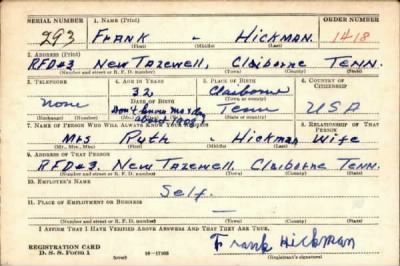 SERIAL NUMBER 1. NAME (Print) ORDER NUMBER
293 FRANK - HICKMAN 1418
(First) (Middle) (Last)
2. ADDRESS (Print)
RFD#3 New Tazewell, Claiborne Tenn.
(Number and street or R. F. D. number) (Town) (County) (State)
3. TELEPHONE 4. AGE IN YEARS 5. PLACE OF BIRTH 6. COUNTRY OF CITIZENSHIP
32 Claiborne
none DATE OF BIRTH (Town or county) USA
Don't know Mo & Day Tenn
about 1908
(Mo.) (Day) (Yr.) (State or country)
7. NAME OF PERSON WHO WILL ALWAYS KNOW YOUR ADDRESS 8. RELATIONSHIP OF THAT PERSON
Mrs Ruth - Hickman Wife
(Mr., Mrs., Miss) (First) (Middle) (Last)
9. ADDRESS OF THAT PERSON
RFD#3 New Tazewell, Claiborne Tenn.
(Number and street or R. F. D. number) (Town) (County) (State)
10. EMPLOYER'S NAME
Self.
11. PLACE OF EMPLOYMENT OR BUSINESS
—
(Number and street or R. F. D. number) (Town) (County) (State)
I AFFIRM THAT I HAVE VERIFIED ABOVE ANSWERS AND THAT THEY ARE TRUE.
Frank Hickman
REGISTRATION CARD
D. S. S. Form 1 (over) 16—17105 (Registrant's signature)